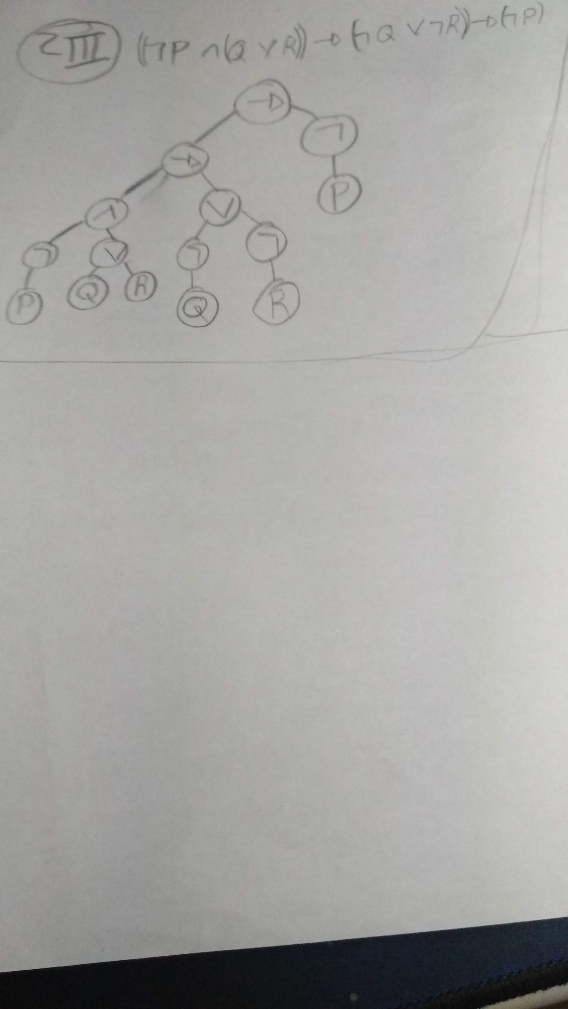 2III ((¬P ∧(Q ∨ R)) → (¬Q ∨ ¬R)) → (¬P)
→
→ ¬
∧ ∨ P
¬ ∨ ¬ ¬
P Q R Q R